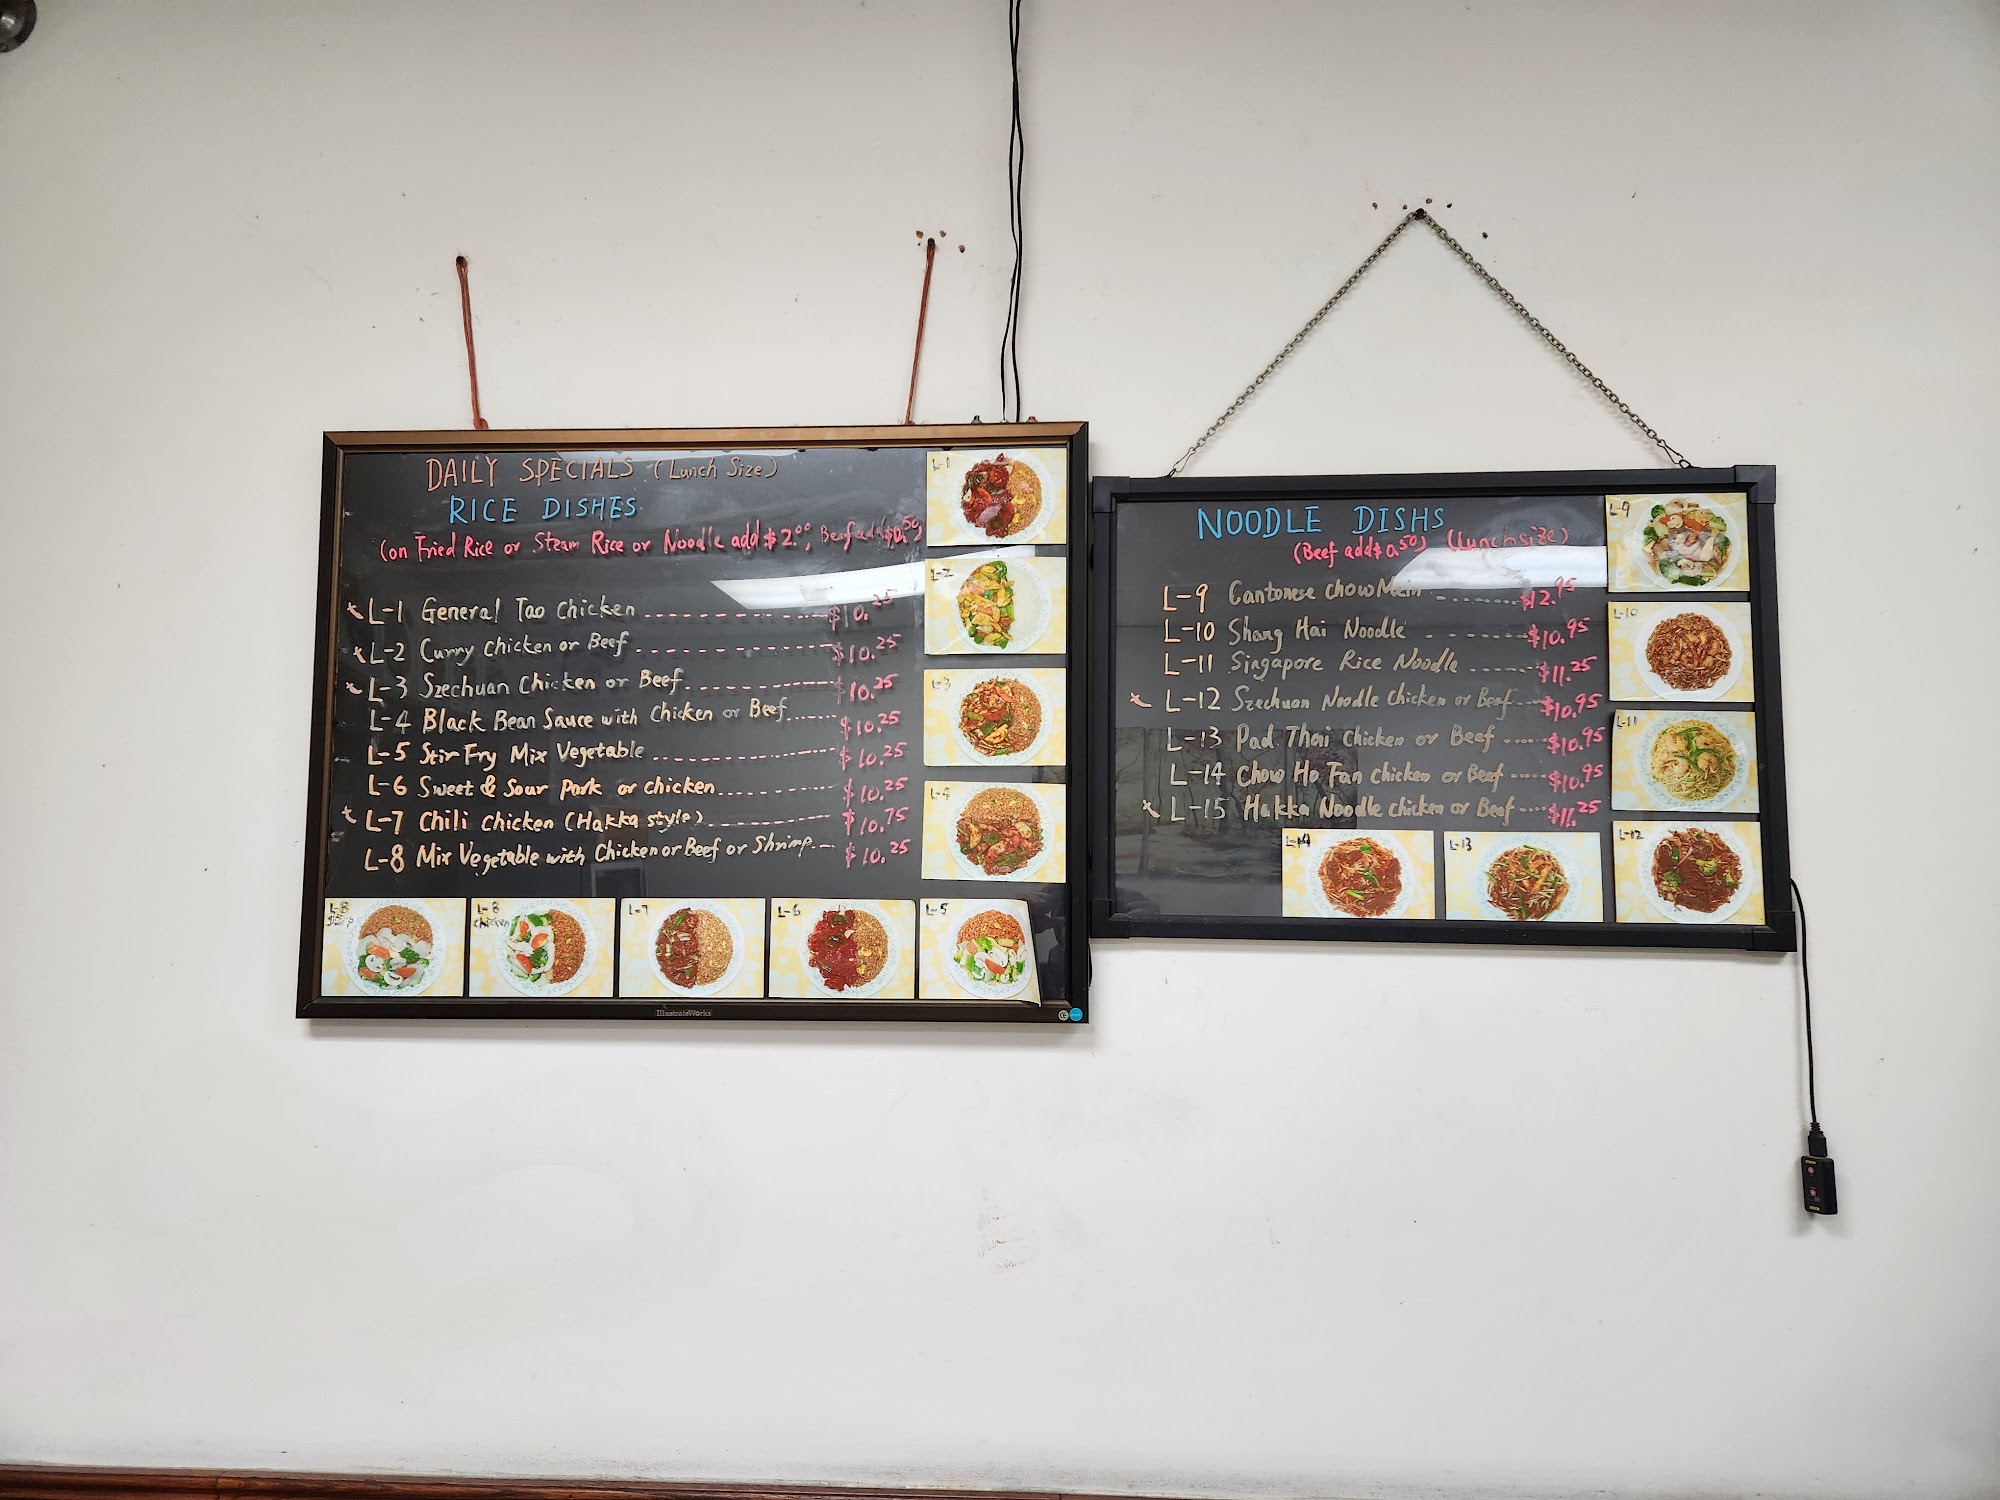 DAILY SPECIALS (Lunch Size)
RICE DISHES
(on Fried Rice or Steam Rice or Noodle add $2.00, Beef add $0.50)
L-1 General Tao Chicken $10.25
L-2 Curry Chicken or Beef $10.25
L-3 Szechuan Chicken or Beef $10.25
L-4 Black Bean Sauce with Chicken or Beef $10.25
L-5 Stir Fry Mix Vegetable $10.25
L-6 Sweet & Sour Pork or chicken $10.25
L-7 Chili Chicken (Hakka style) $10.75
L-8 Mix Vegetable with Chicken or Beef or Shrimp $10.25
L-1
L-2
L-3
L-4
L-8
L-8
chicken
L-7
L-6
L-5
IllustrateWorks
NOODLE DISHS
(Beef add $0.50) (Lunch size)
L-9 Cantonese Chow Mein $12.95
L-10 Shang Hai Noodle $10.95
L-11 Singapore Rice Noodle $11.25
L-12 Szechuan Noodle Chicken or Beef $10.95
L-13 Pad Thai Chicken or Beef $10.95
L-14 Chow Ho Fan Chicken or Beef $10.95
L-15 Hakka Noodle Chicken or Beef $11.25
L-9
L-10
L-11
L-14
L-13
L-12